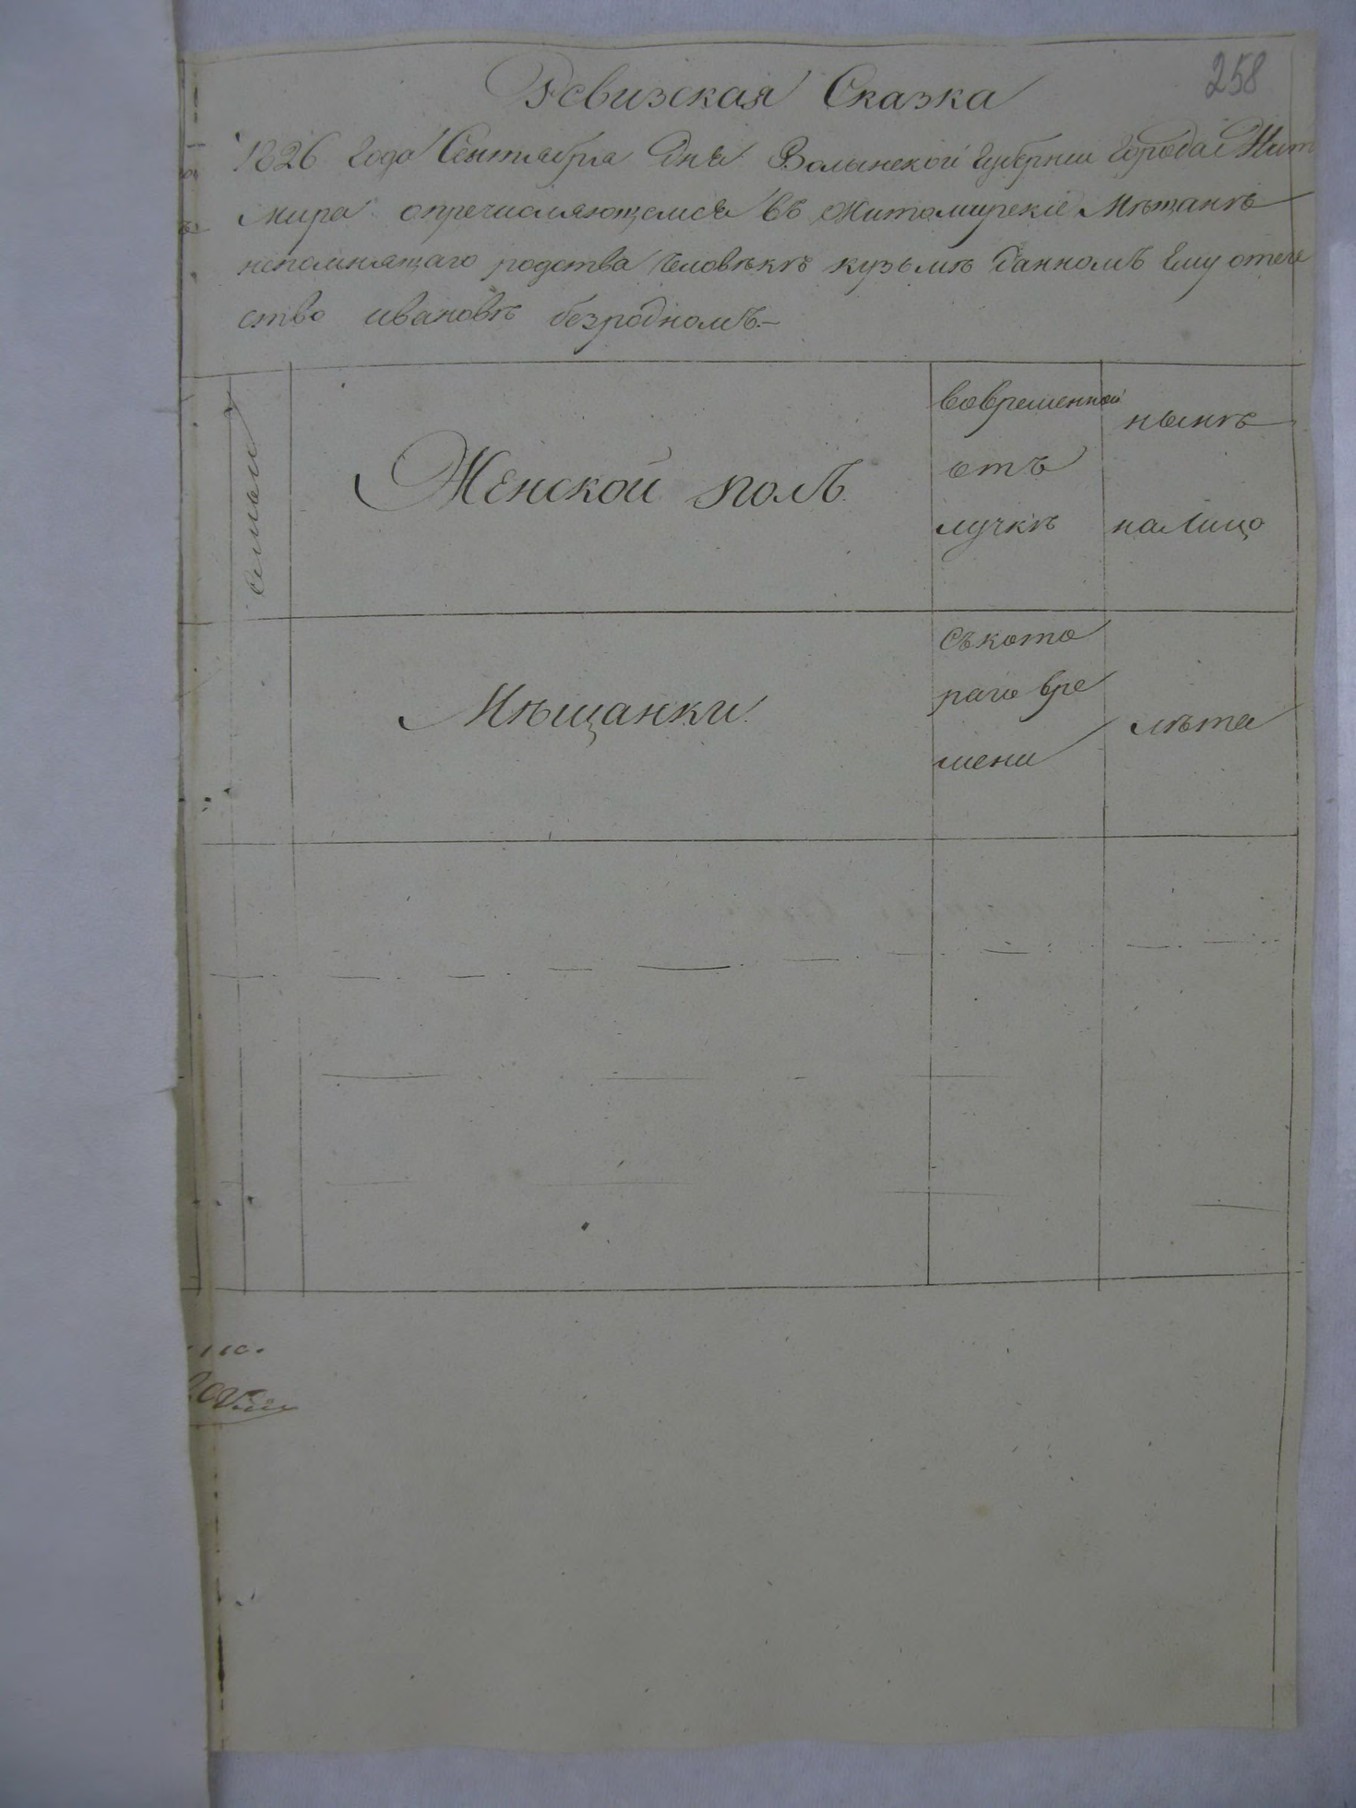 258
Ревизская Сказка
1826 Года Сентября Дня Волынской Губернии Города Жит
мира опречисляющемся въ Житомирские Мѣщанѣ
непомнящаго родства Человѣкѣ кузьмѣ Данномъ Ему отече
ство ивановѣ безродномъ.—
семьи
Женской полъ
вовременной
отъ
лучкѣ
нынѣ
налицо
Мѣщанки
съкото
раго вре
мени
лѣта